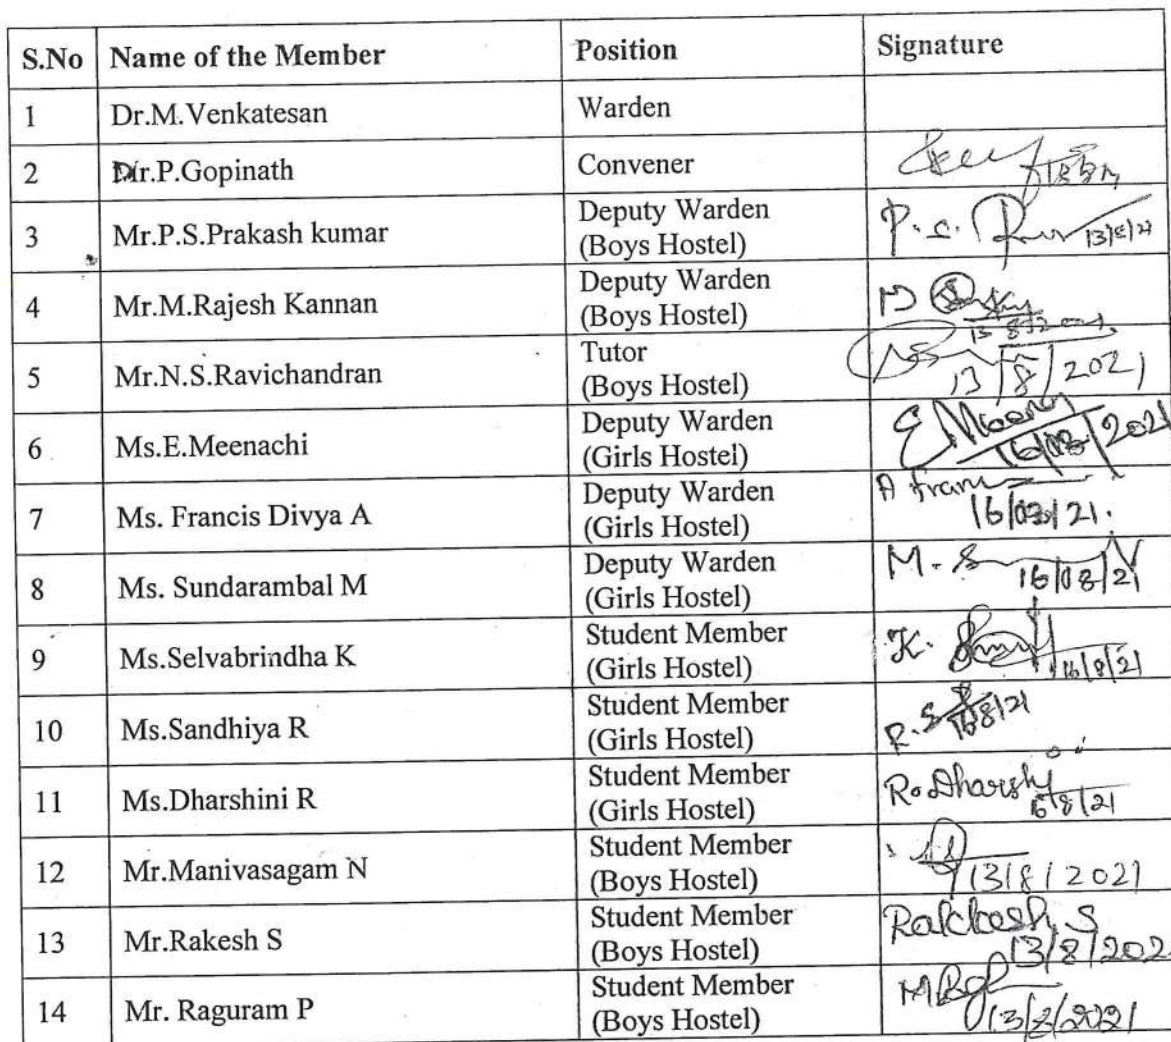 S.No Name of the Member Position Signature
1 Dr.M.Venkatesan Warden
2 Dr.P.Gopinath Convener
3 Mr.P.S.Prakash kumar Deputy Warden
(Boys Hostel) P.S. 13/8/21
4 Mr.M.Rajesh Kannan Deputy Warden
(Boys Hostel) M
13/8/2021
5 Mr.N.S.Ravichandran Tutor
(Boys Hostel) 13/8/2021
6 Ms.E.Meenachi Deputy Warden
(Girls Hostel) E Meena
16/08/2021
7 Ms. Francis Divya A Deputy Warden
(Girls Hostel) A Fran
16/08/21.
8 Ms. Sundarambal M Deputy Warden
(Girls Hostel) M. S
16/08/21
9 Ms.Selvabrindha K Student Member
(Girls Hostel) K.
16/8/21
10 Ms.Sandhiya R Student Member
(Girls Hostel) R. S
16/8/21
11 Ms.Dharshini R Student Member
(Girls Hostel) R. Dharshi
16/8/21
12 Mr.Manivasagam N Student Member
(Boys Hostel) 13/8/2021
13 Mr.Rakesh S Student Member
(Boys Hostel) Rakkesh S
13/8/202
14 Mr. Raguram P Student Member
(Boys Hostel) 13/8/2021